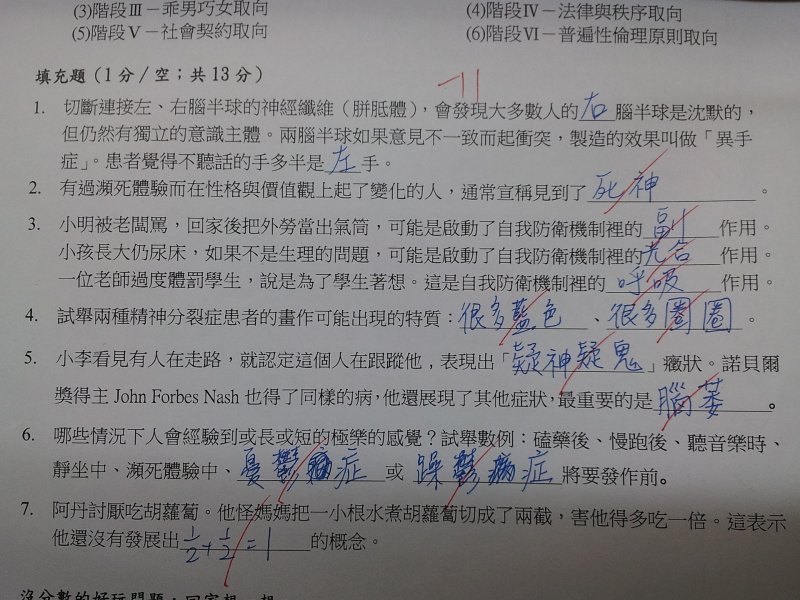 (3)階段Ⅲ－乖男巧女取向 (4)階段Ⅳ－法律與秩序取向
(5)階段Ⅴ－社會契約取向 (6)階段Ⅵ－普遍性倫理原則取向
填充題(1分／空；共13分)
1. 切斷連接左、右腦半球的神經纖維（胼胝體），會發現大多數人的右腦半球是沈默的，
但仍然有獨立的意識主體。兩腦半球如果意見不一致而起衝突，製造的效果叫做「異手
症」。患者覺得不聽話的手多半是左手。
2. 有過瀕死體驗而在性格與價值觀上起了變化的人，通常宣稱見到了死神。
3. 小明被老闆罵，回家後把外勞當出氣筒，可能是啟動了自我防衛機制裡的副作用。
小孩長大仍尿床，如果不是生理的問題，可能是啟動了自我防衛機制裡的光合作用。
一位老師過度體罰學生，說是為了學生著想。這是自我防衛機制裡的呼吸作用。
4. 試舉兩種精神分裂症患者的畫作可能出現的特質：很多藍色、很多圈圈。
5. 小李看見有人在走路，就認定這個人在跟蹤他，表現出「疑神疑鬼」癥狀。諾貝爾
獎得主 John Forbes Nash 也得了同樣的病，他還展現了其他症狀，最重要的是腦萎。
6. 哪些情況下人會經驗到或長或短的極樂的感覺？試舉數例：磕藥後、慢跑後、聽音樂時、
靜坐中、瀕死體驗中、憂鬱症或躁鬱症將要發作前。
7. 阿丹討厭吃胡蘿蔔。他怪媽媽把一小根水煮胡蘿蔔切成了兩截，害他得多吃一倍。這表示
他還沒有發展出½+½=1的概念。
沒分數的好玩問題，回家想一想